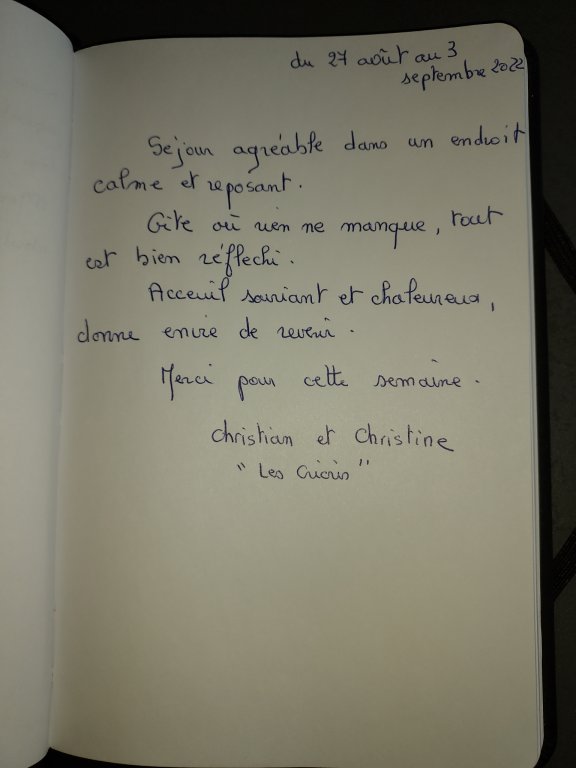 du 27 août au 3
septembre 2022
Sejour agréable dans un endroit
calme et reposant.
Gite où rien ne manque, tout
est bien réfflechi.
Acceuil souriant et chaleureux,
donne envie de revenir.
Merci pour cette semaine.
Christian et Christine
"Les Cricris"